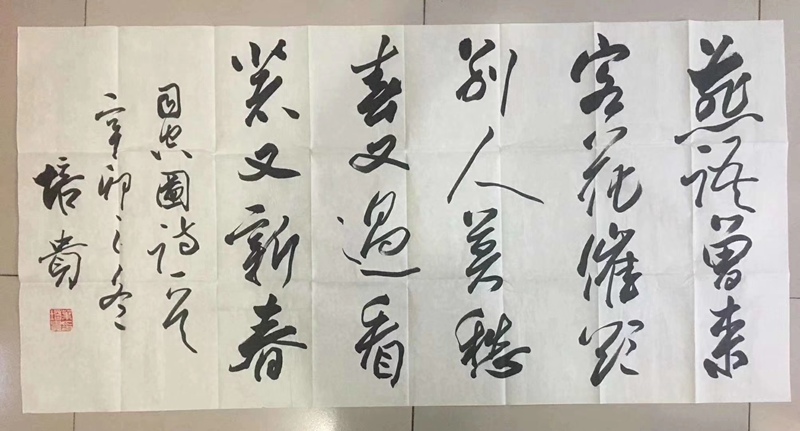 燕語曾来
客花催欲
别人莫愁
春又過看
著又新春
司空圖詩一首
辛卯之冬
培貴